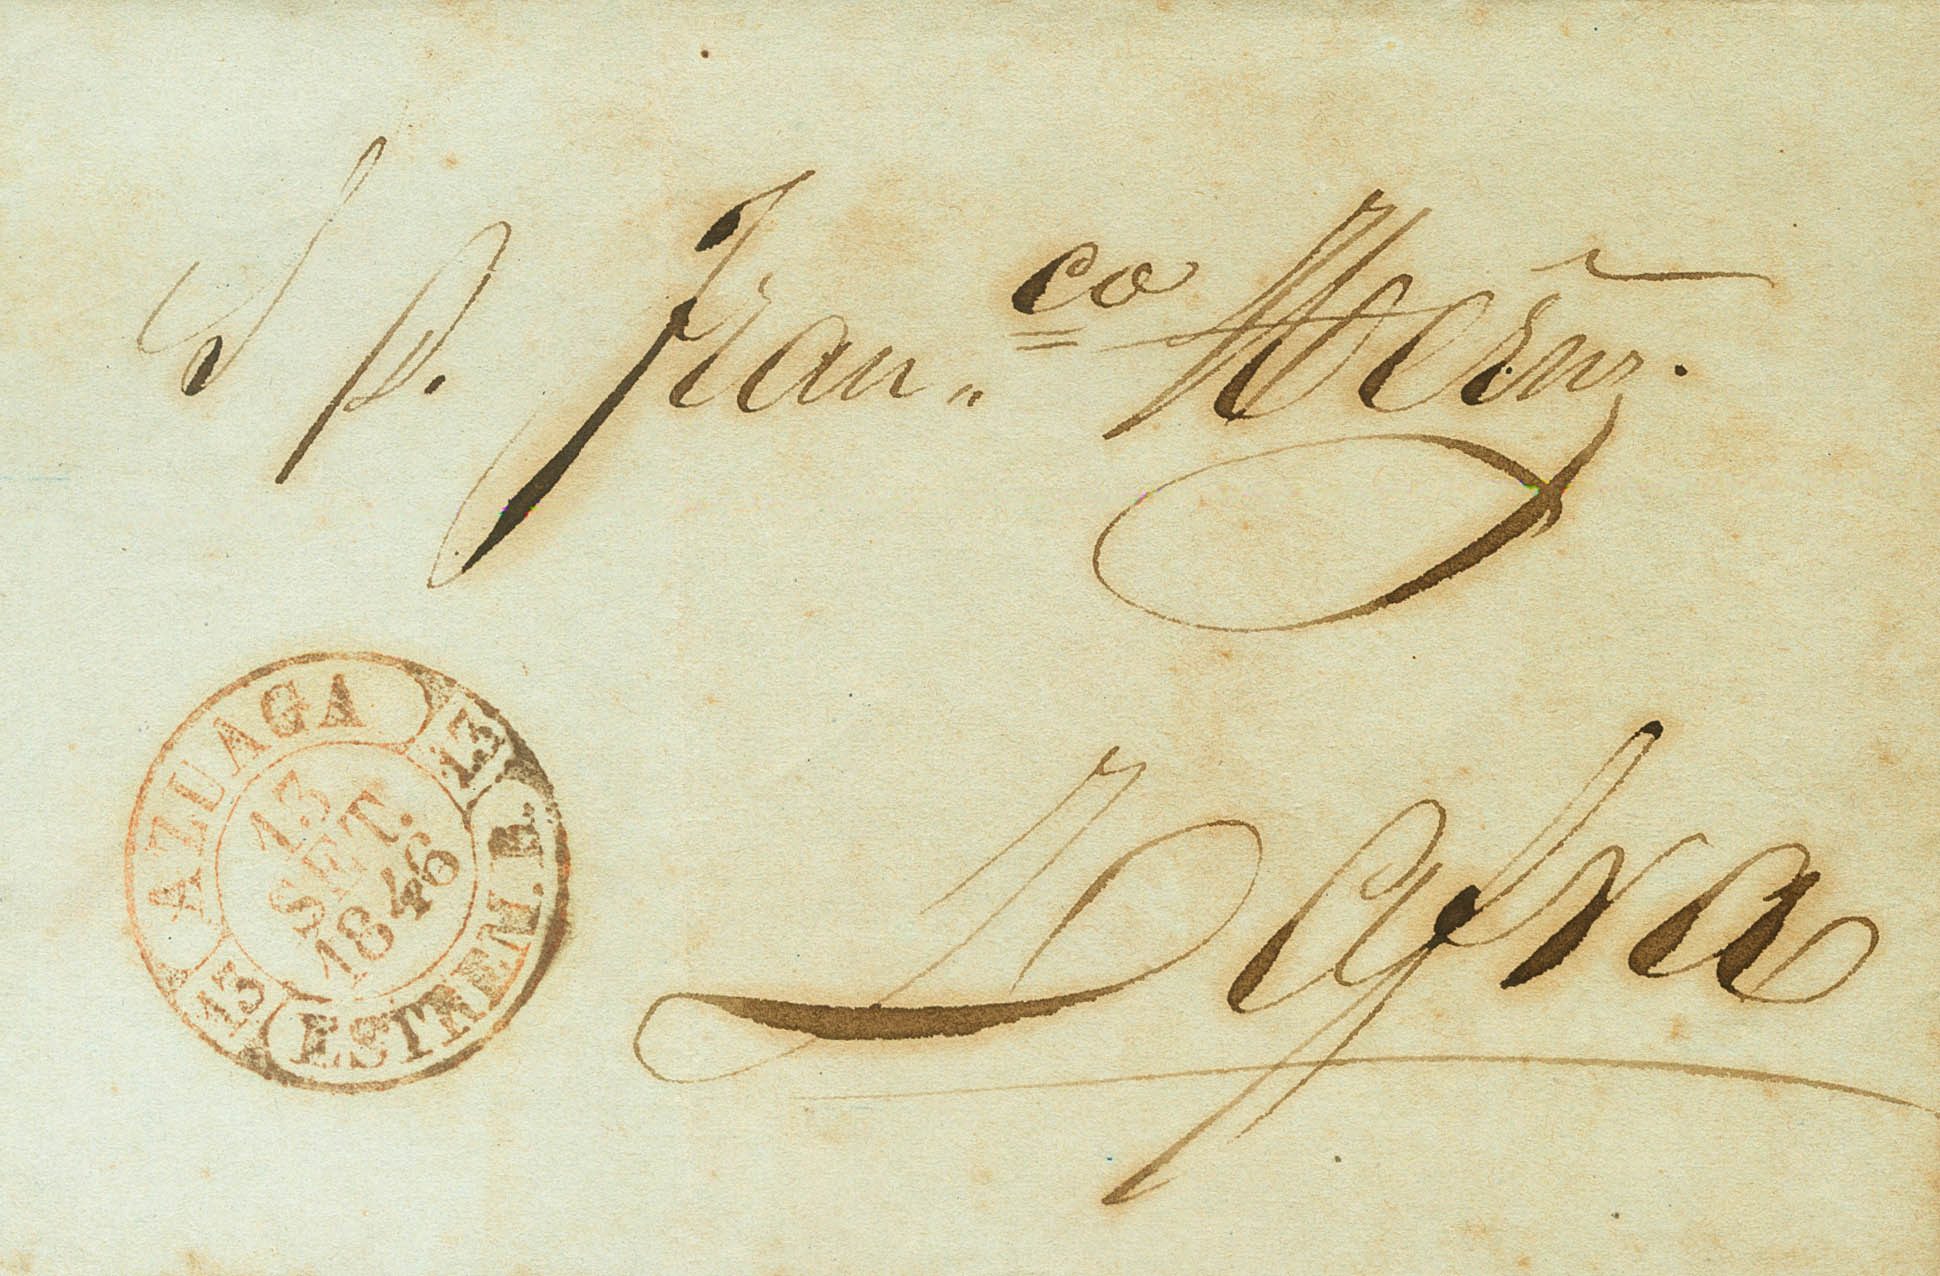 S D. Fran.co Hernz.
AZUAGA
13
13
SET.
1846
13
ESTREM. B.
Zafra